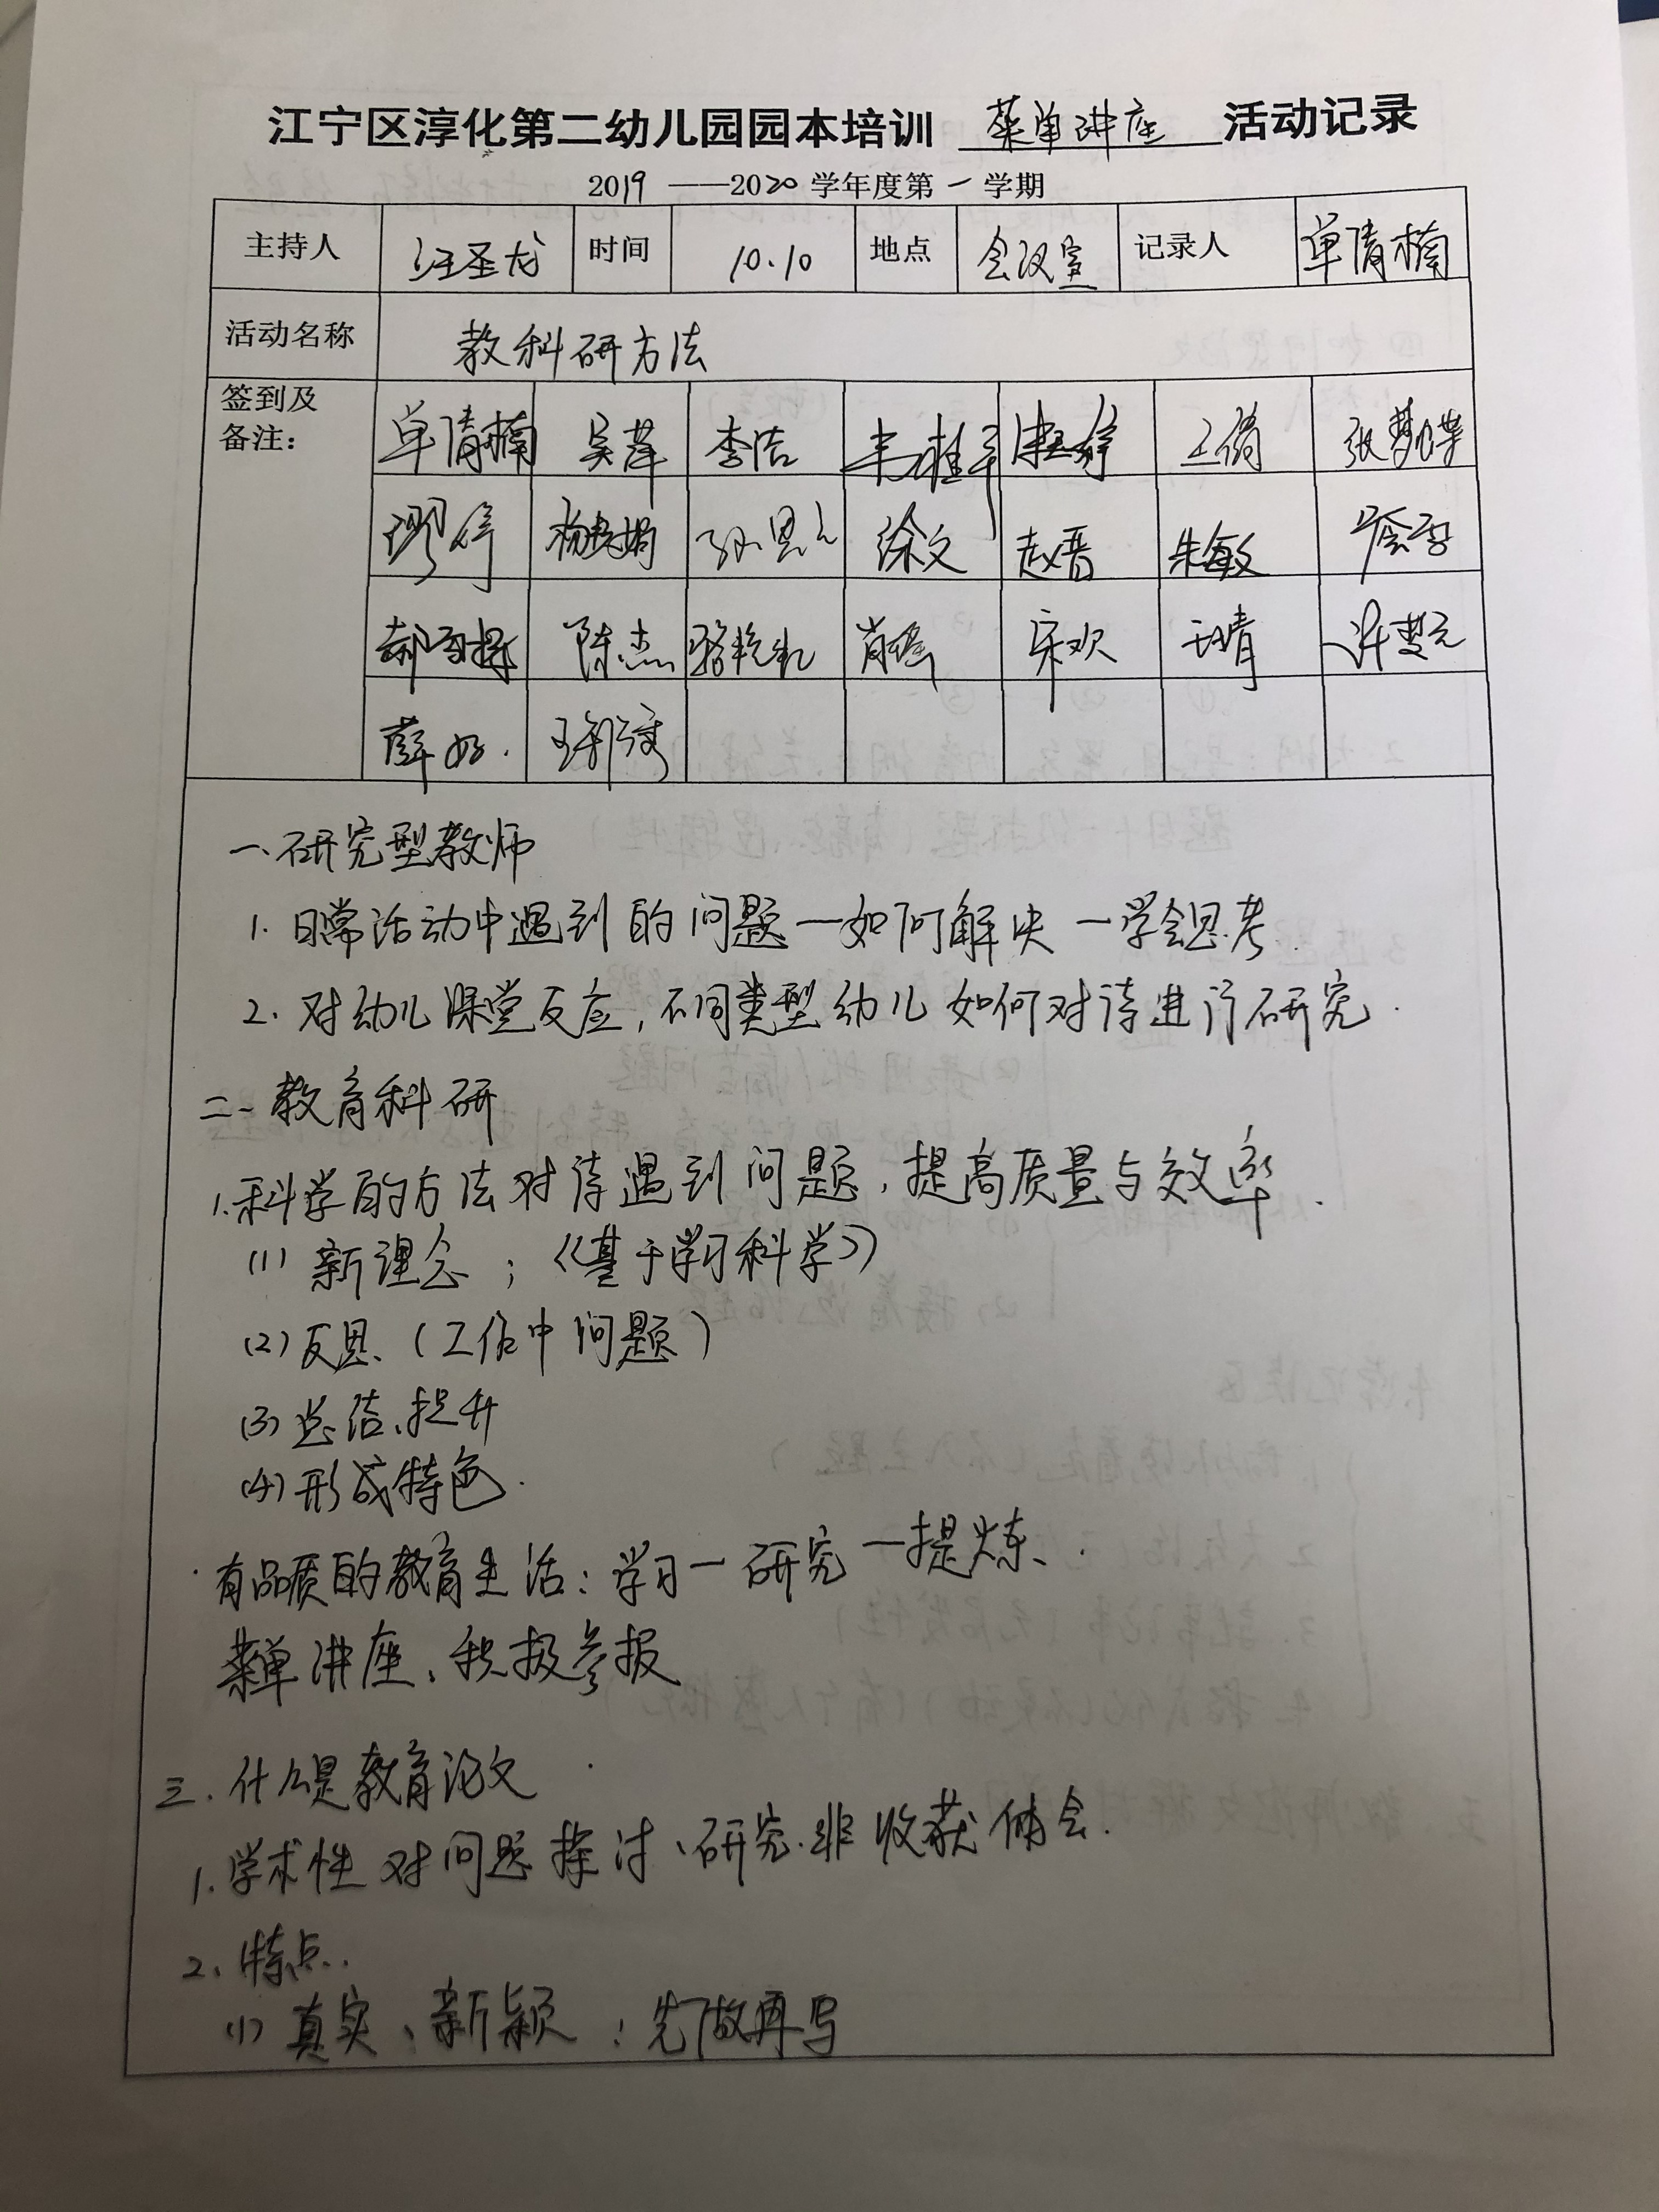 江宁区淳化第二幼儿园园本培训 菜单讲座 活动记录
2019 ——2020 学年度第一学期
主持人 汪圣龙 时间 10.10 地点 会议室 记录人 单倩楠
活动名称 教科研方法
签到及
备注：
单倩楠 吴萍 李洁 韦桂平 王倩 张梦蝶
缪婷 孙思元 徐文 赵晋 朱敏
陈杰 骆艳 肖瑶 宋欢 许楚元
薛好
一、研究型教师
1. 日常活动中遇到的问题—如何解决—学会思考
2. 对幼儿课堂反应，不同类型幼儿如何对待进行研究．
二、教育科研
1.科学的方法对待遇到问题，提高质量与效率．
(1) 新理念；《基于学习科学》
(2) 反思、（工作中问题）
(3) 总结、提升
(4) 形成特色．
有品质的教育生活：学习—研究—提炼、
菜单讲座、积极参报
三．什么是教育论文
1. 学术性 对问题探讨、研究．非收获体会．
2、特点．
(1) 真实、新颖；先做再写